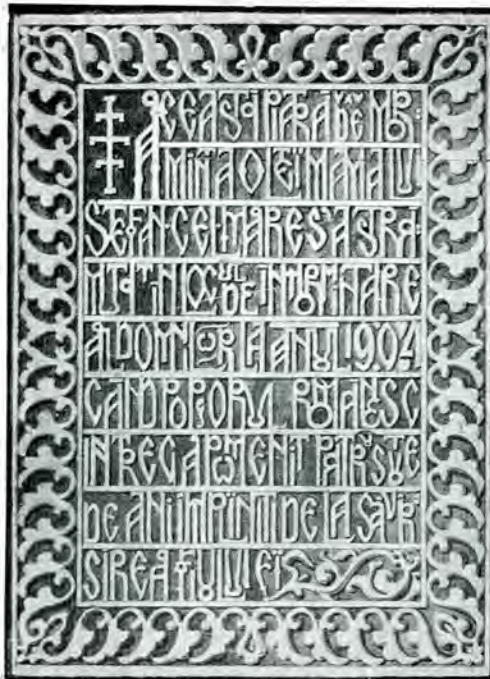 ACEASTĂ PIATRĂ DE MOR
MINT A OLTEI MAMA LUI
ȘTEFAN CEL MARE S'A STRĂ
MUTAT IN LOCUL DE INMORMINTARE
AL DOMNILOR LA ANUL 1904
CAND POPORUL ROMANESC
INTREG A POMENIT PATRU SUTE
DE ANI IMPLINITI DE LA SAVIR
SIREA FIULUI EI